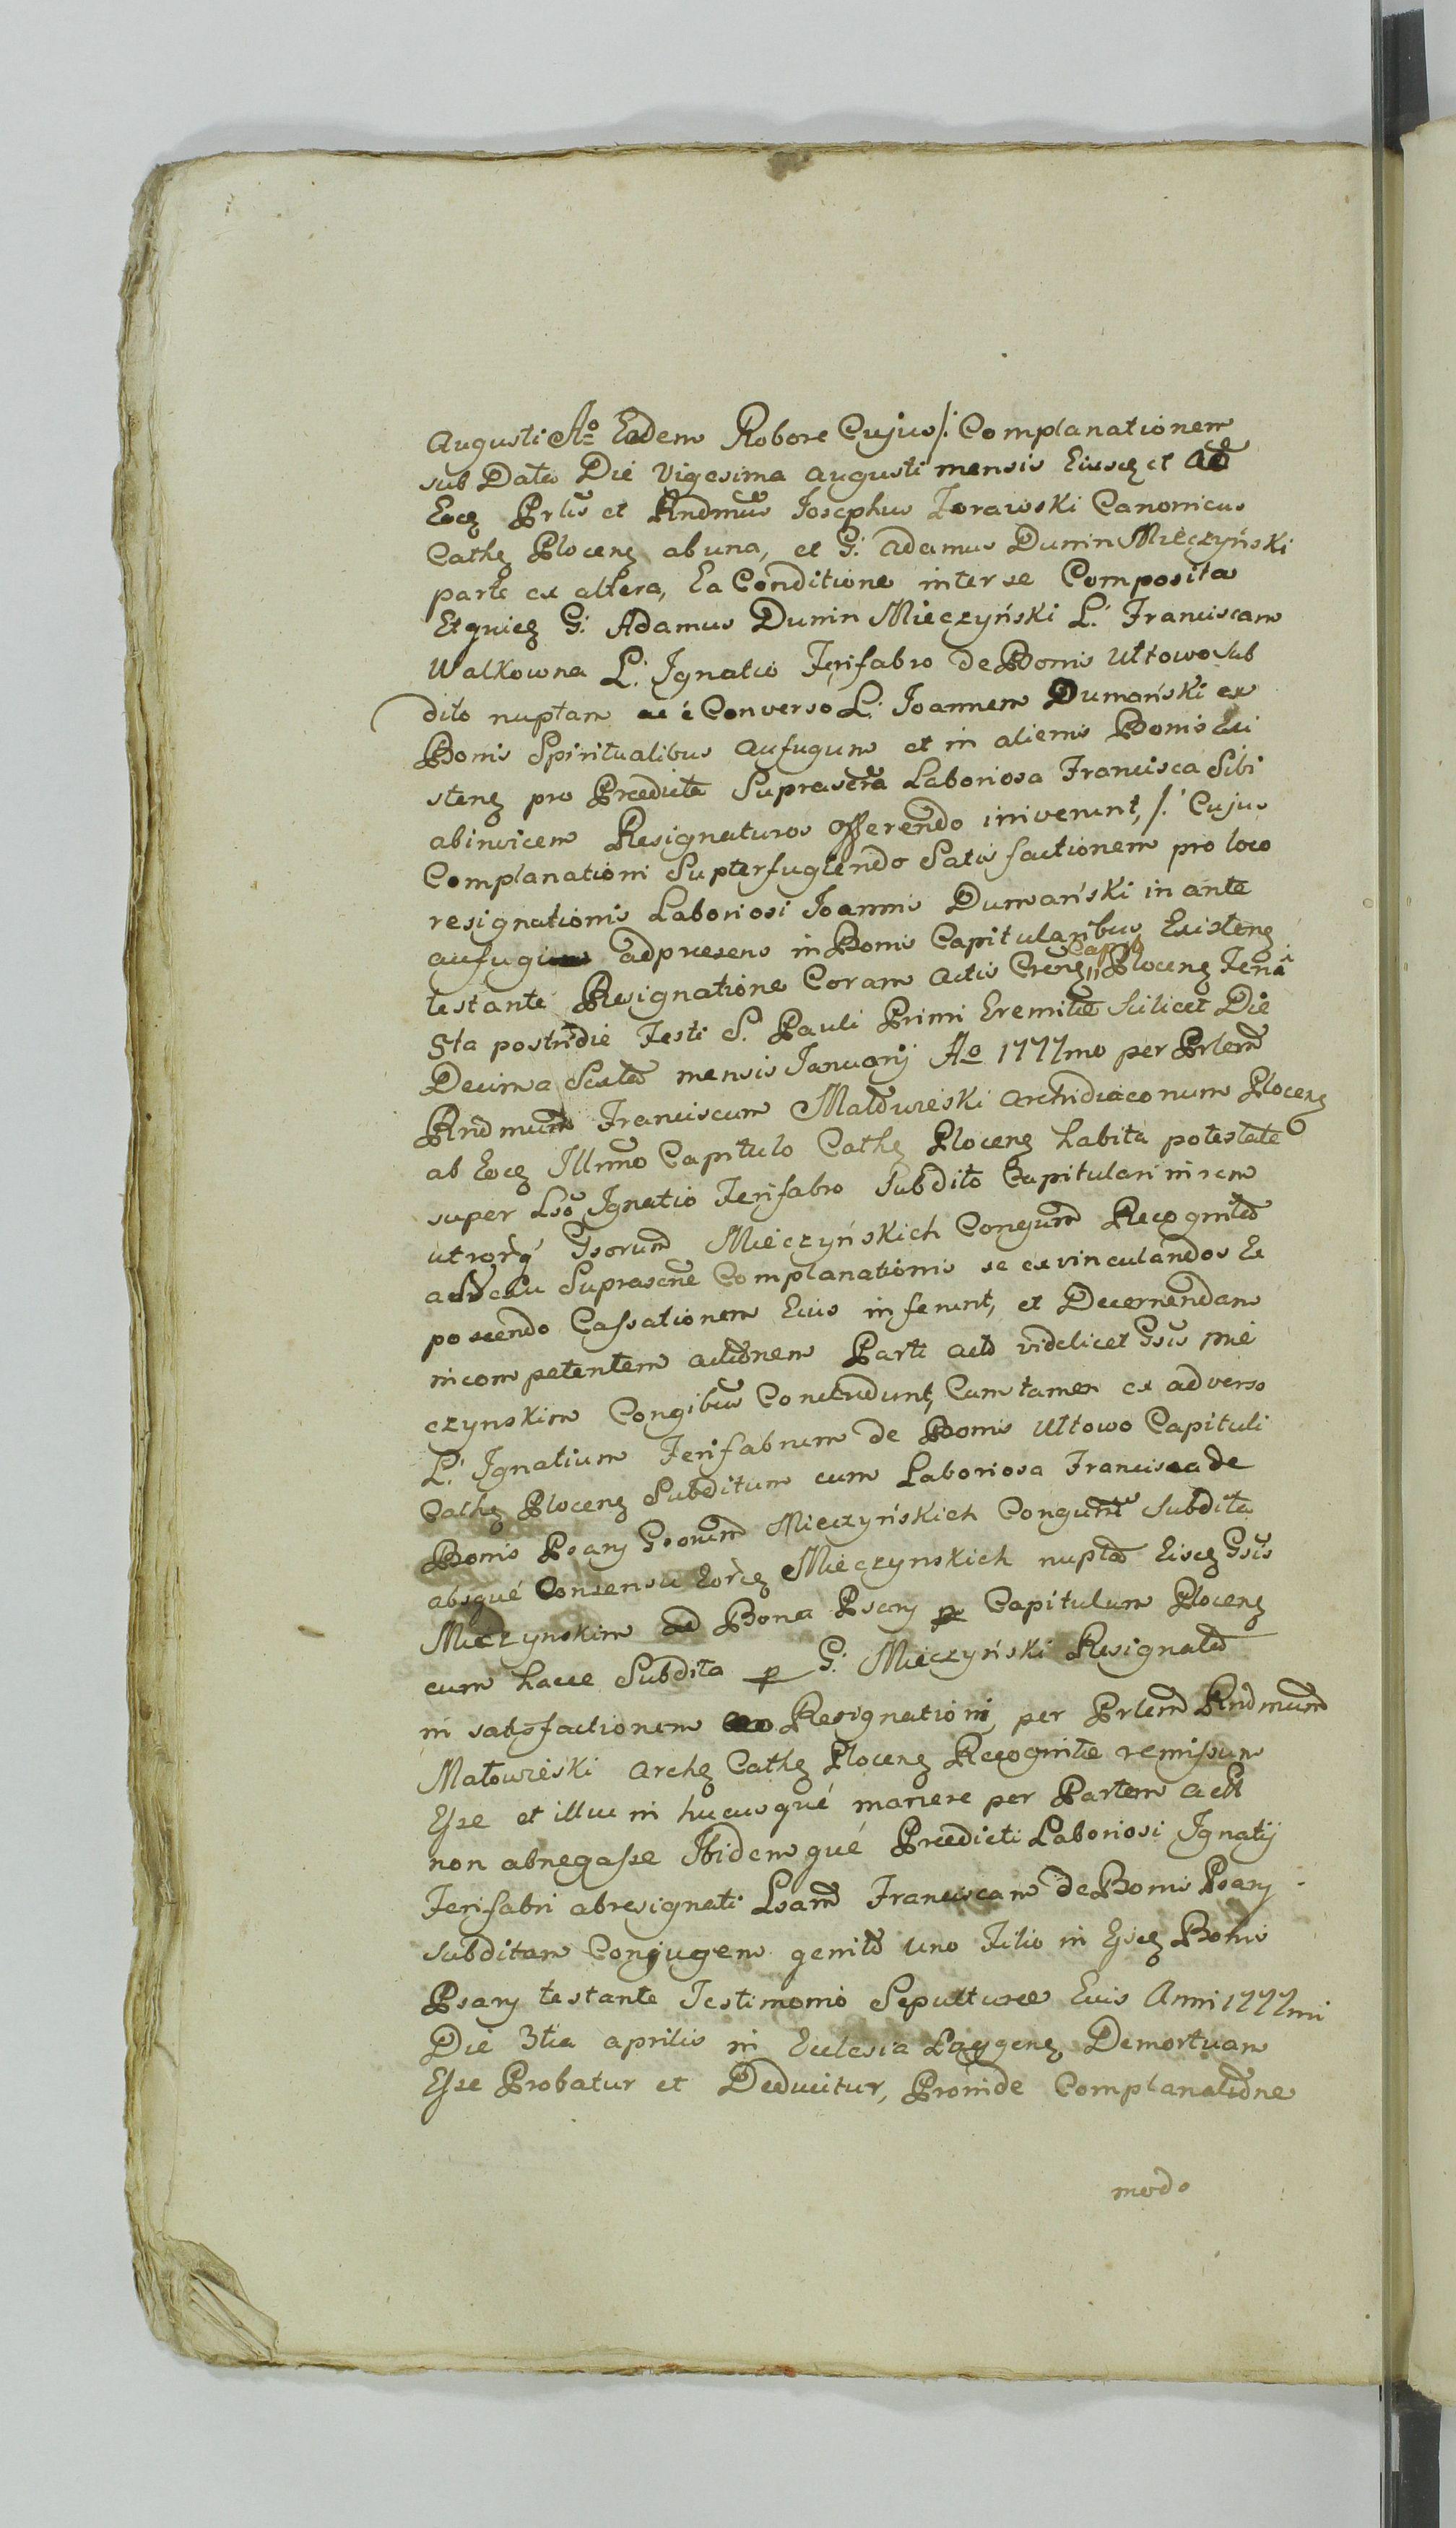 Augusti Aō Eodem Robore Cujus /: Complanationem
sub Data Die Vigesima Augusti mensis Eiusq et
Eoq Prlis et Rndmus Josephus Zorawski Canonicus
Cathq Plocenq ab una, et G: Adamus Dunin Mieczyński
parte ex altera, Ea Conditione inter se Composita
G: Adamus Dunin Mieczyński L: Franciscam
Walkowna L: Ignatio Ferifabro de Bonis Ułtowo Sub
dito nuptam ac é Converso L: Joannem Dumański ex
Bonis Spiritualibus Aufugum et in alienis Bonis Exi
stenq pro Praedicta Suprascrta Laboriosa Francisca Sibi
abinvicem Resignaturos offerendo inivenint, /: Cujus
Complanationi Supterfugiendo Satisfactionem pro loco
resignationis Laboriosi Joannis Dumański in ante
aufugi ad praesens in Bonis Capitularibus Existenq
testante Resignatione Coram Actis Crenq Capit Plocenq Feria
5ta postridie Festi S. Pauli Primi Eremitae Scilicet Die
Decima Sexta mensis Januarij Aō 1777mo per Prlem
Rndmum Franciscum Małowieski Archidiaconum Plocenq
ab Eoq Illrmo Capitulo Cathq Plocenq habita potestate
super Lso Ignatio Ferifabro Subdito Capitulari in rem
utrorq Gsorum Mieczyńskich Congum Recognita
Suprascrte Complanationis se exvinculandos Ex
poscendo Cassationem Eius inferunt, et Decernendam
incompetentem actionem Parti videlicet Gsis Mie
czynskim Congibus Concludunt, Cum tamen ex adverso
L: Ignatium Ferifabrum de Bonis Ułtowo Capituli
Cathq Plocenq Subditum cum Laboriosa Francisca de
Bonis Psary Gsorum Mieczyńskich Congum Subdita
absqué Consensu Eorq Mieczynskich nupta Eisq Gsis
Mieczynskim ad Bona Psary p Capitulum Plocenq
cum hacce Subdita p G: Mieczyński Resignata
in satisfactionem Resignationi per Prlem Rndmum
Małowieski Archq Cathq Plocenq Recognitae remissum
Esse et illuc in hucusqué manere per Partem Act
non abnegasse Ibidemqué Praedicti Laboriosi Ignatij
Ferifabri abresignati Lsam Franciscam de Bonis Psary
subditam Conjugem genito uno Filio in Ejsq Bonis
Psary testante Testimonio Sepulturae Eius Anni 1777mi
Die 3tia aprilis in Eclesia Demortuam
Esse Probatur et Deducitur, Proinde Complanatione
modo